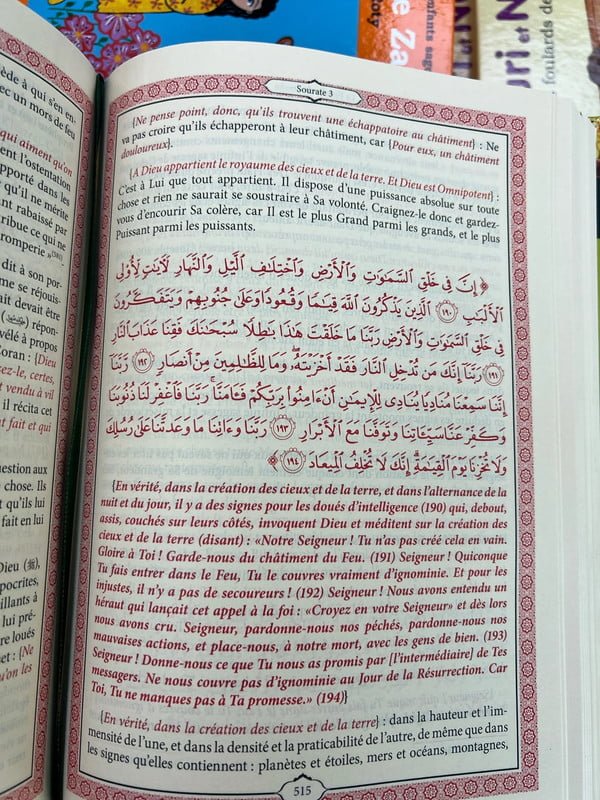 e Za
tory
enfants sage
uri et N
foulards de
ède à qui s'en en-
ec un mors de feu
qui aiment qu'on
ent l'ostentation
pporté dans les
t qu'il ne mérite
ant rabaissé par
tribue ce qu'il ne
romperie »
dit à son por-
me se réjouis-
ait devait être
répon-
vélé à propos
Coran : {Dieu
ez-le, certes,
t vendu à vil
il récita cet
fait et qui
uestion aux
chose. Ils
t qu'ils lui
fait en lui
Dieu (ﷻ),
pocrites,
illants à
lui pré-
re loués
et : {Ne
u'on les
Sourate 3
{Ne pense point, donc, qu'ils trouvent une échappatoire au châtiment} : Ne
va pas croire qu'ils échapperont à leur châtiment, car {Pour eux, un châtiment
douloureux}.
{A Dieu appartient le royaume des cieux et de la terre. Et Dieu est Omnipotent} :
C'est à Lui que tout appartient. Il dispose d'une puissance absolue sur toute
chose et rien ne saurait se soustraire à Sa volonté. Craignez-le donc et gardez-
vous d'encourir Sa colère, car Il est le plus Grand parmi les grands, et le plus
Puissant parmi les puissants.
﴿ إِنَّ فِي خَلْقِ ٱلسَّمَٰوَٰتِ وَٱلْأَرْضِ وَٱخْتِلَٰفِ ٱلَّيْلِ وَٱلنَّهَارِ لَءَايَٰتٍ لِّأُو۟لِي
ٱلْأَلْبَٰبِ ١٩٠ ٱلَّذِينَ يَذْكُرُونَ ٱللَّهَ قِيَٰمًا وَقُعُودًا وَعَلَىٰ جُنُوبِهِمْ وَيَتَفَكَّرُونَ
فِي خَلْقِ ٱلسَّمَٰوَٰتِ وَٱلْأَرْضِ رَبَّنَا مَا خَلَقْتَ هَٰذَا بَٰطِلًا سُبْحَٰنَكَ فَقِنَا عَذَابَ ٱلنَّارِ
١٩١ رَبَّنَآ إِنَّكَ مَن تُدْخِلِ ٱلنَّارَ فَقَدْ أَخْزَيْتَهُۥ وَمَا لِلظَّٰلِمِينَ مِنْ أَنصَارٍ ١٩٢ رَّبَّنَآ
إِنَّنَا سَمِعْنَا مُنَادِيًا يُنَادِي لِلْإِيمَٰنِ أَنْ ءَامِنُوا۟ بِرَبِّكُمْ فَـَٔامَنَّا رَبَّنَا فَٱغْفِرْ لَنَا ذُنُوبَنَا
وَكَفِّرْ عَنَّا سَيِّـَٔاتِنَا وَتَوَفَّنَا مَعَ ٱلْأَبْرَارِ ١٩٣ رَبَّنَا وَءَاتِنَا مَا وَعَدتَّنَا عَلَىٰ رُسُلِكَ
وَلَا تُخْزِنَا يَوْمَ ٱلْقِيَٰمَةِ إِنَّكَ لَا تُخْلِفُ ٱلْمِيعَادَ ١٩٤ ﴾
{En vérité, dans la création des cieux et de la terre, et dans l'alternance de la
nuit et du jour, il y a des signes pour les doués d'intelligence (190) qui, debout,
assis, couchés sur leurs côtés, invoquent Dieu et méditent sur la création des
cieux et de la terre (disant) : «Notre Seigneur ! Tu n'as pas créé cela en vain.
Gloire à Toi ! Garde-nous du châtiment du Feu. (191) Seigneur ! Quiconque
Tu fais entrer dans le Feu, Tu le couvres vraiment d'ignominie. Et pour les
injustes, il n'y a pas de secoureurs ! (192) Seigneur ! Nous avons entendu un
héraut qui lançait cet appel à la foi : «Croyez en votre Seigneur» et dès lors
nous avons cru. Seigneur, pardonne-nous nos péchés, pardonne-nous nos
mauvaises actions, et place-nous, à notre mort, avec les gens de bien. (193)
Seigneur ! Donne-nous ce que Tu nous as promis par [l'intermédiaire] de Tes
messagers. Ne nous couvre pas d'ignominie au Jour de la Résurrection. Car
Toi, Tu ne manques pas à Ta promesse.» (194)}
{En vérité, dans la création des cieux et de la terre} : dans la hauteur et l'im-
mensité de l'une, et dans la densité et la praticabilité de l'autre, de même que dans
les signes qu'elles contiennent : planètes et étoiles, mers et océans, montagnes,
515